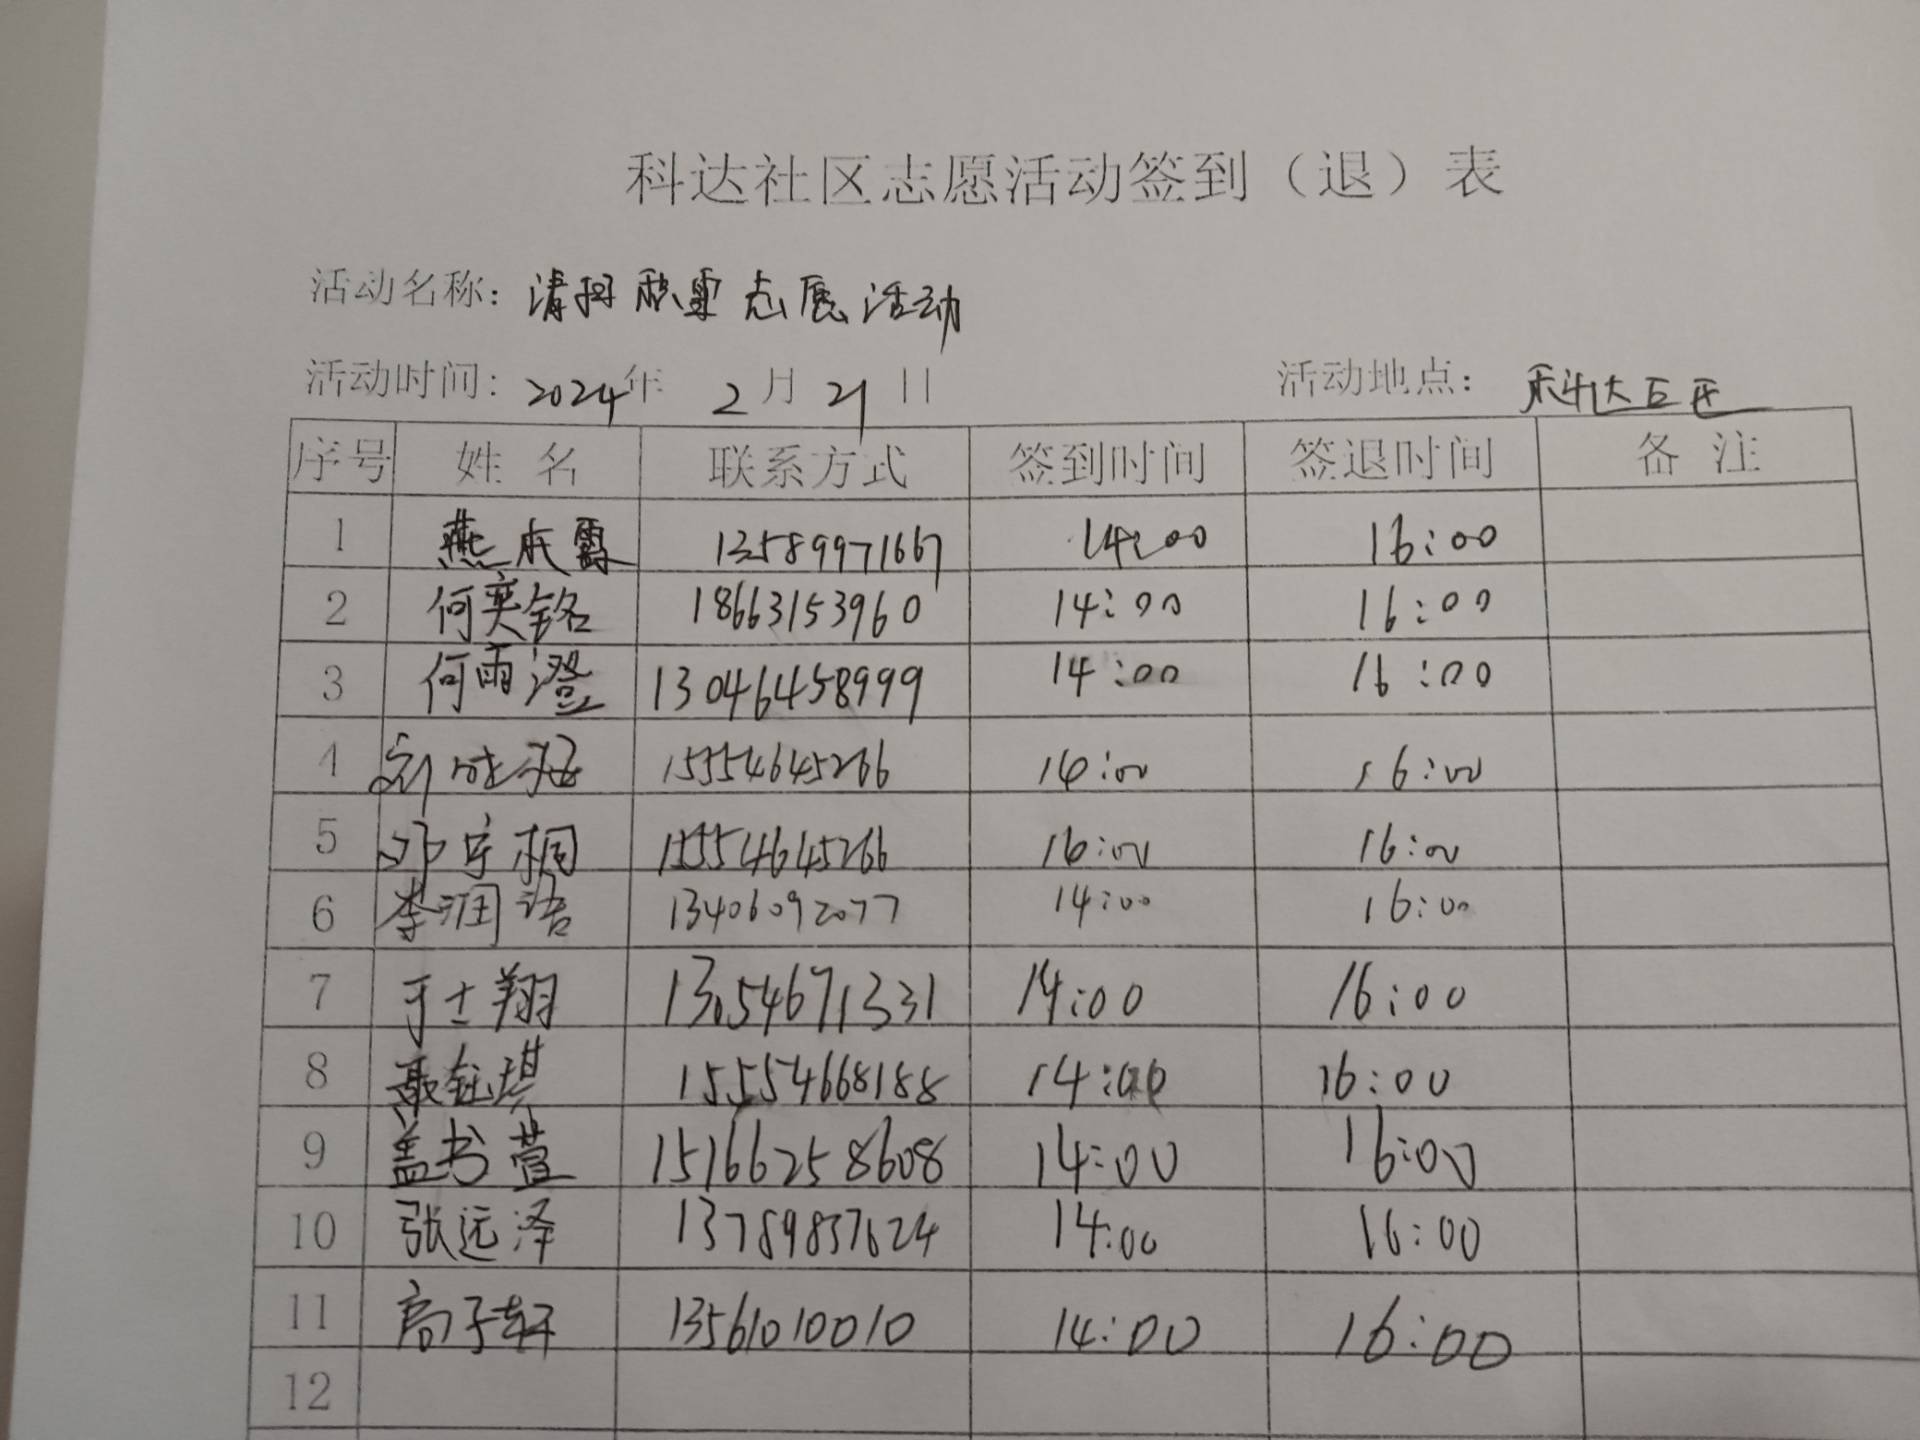 科达社区志愿活动签到（退）表
活动名称：清扫积雪志愿活动
活动时间：2024年 2月 21日 活动地点：科达社区
序号 姓 名 联系方式 签到时间 签退时间 备 注
1 燕 霞 13589971667 14:00 16:00
2 何奕铭 18663153960 14:00 16:00
3 何雨澄 13046458999 14:00 16:00
4 15554645266 16:00
5 邓宇桐 15554645266 16:00 16:00
6 李润语 13406092077 14:00 16:00
7 于士翔 14:00 16:00
8 聂钰琪 15554668188 14:00 16:00
9 盖书萱 15166258608 14:00 16:00
10 张远泽 13789837624 14:00 16:00
11 高子轩 13561010010 14:00 16:00
12